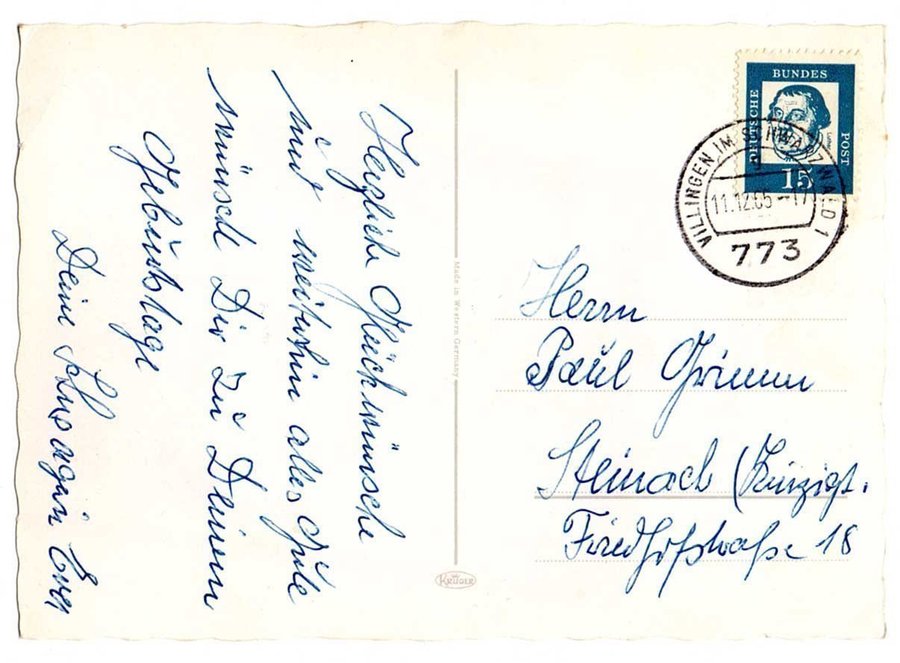 Herzliche Glückwünsche
und weiterhin alles Gute
wünscht Dir zu Deinem
Geburtstage
Deine Eva
Made in Western Germany
KRÜGER
DEUTSCHE
BUNDES
POST
15
VILLINGEN IM SCHWARZWALD 1
11.12.65 -17
773
Herrn
Paul Grimm
Steinach (Kinzigt.
Friedhofstraße 18